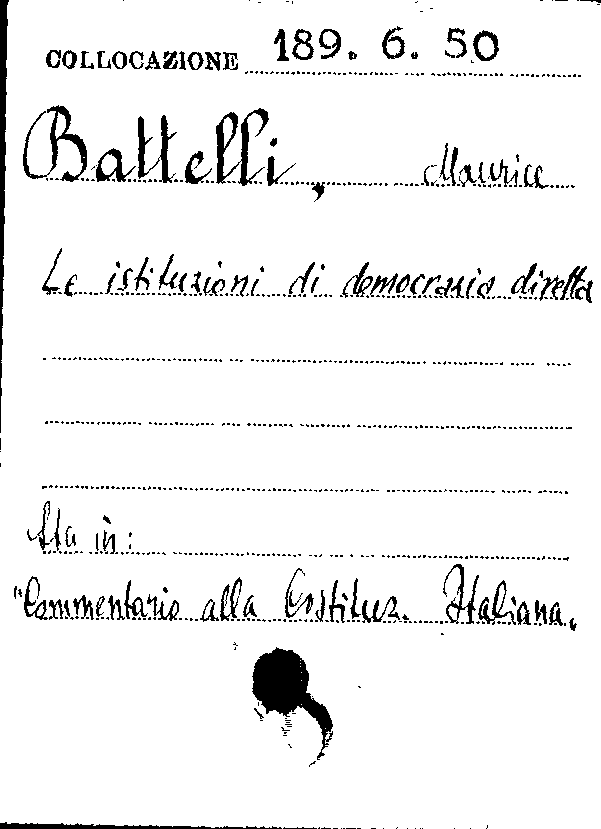 COLLOCAZIONE 189. 6. 50
Battelli, Maurice
Le istituzioni di democrazia diretta
Sta in:
"Commentario alla Costituz. Italiana.